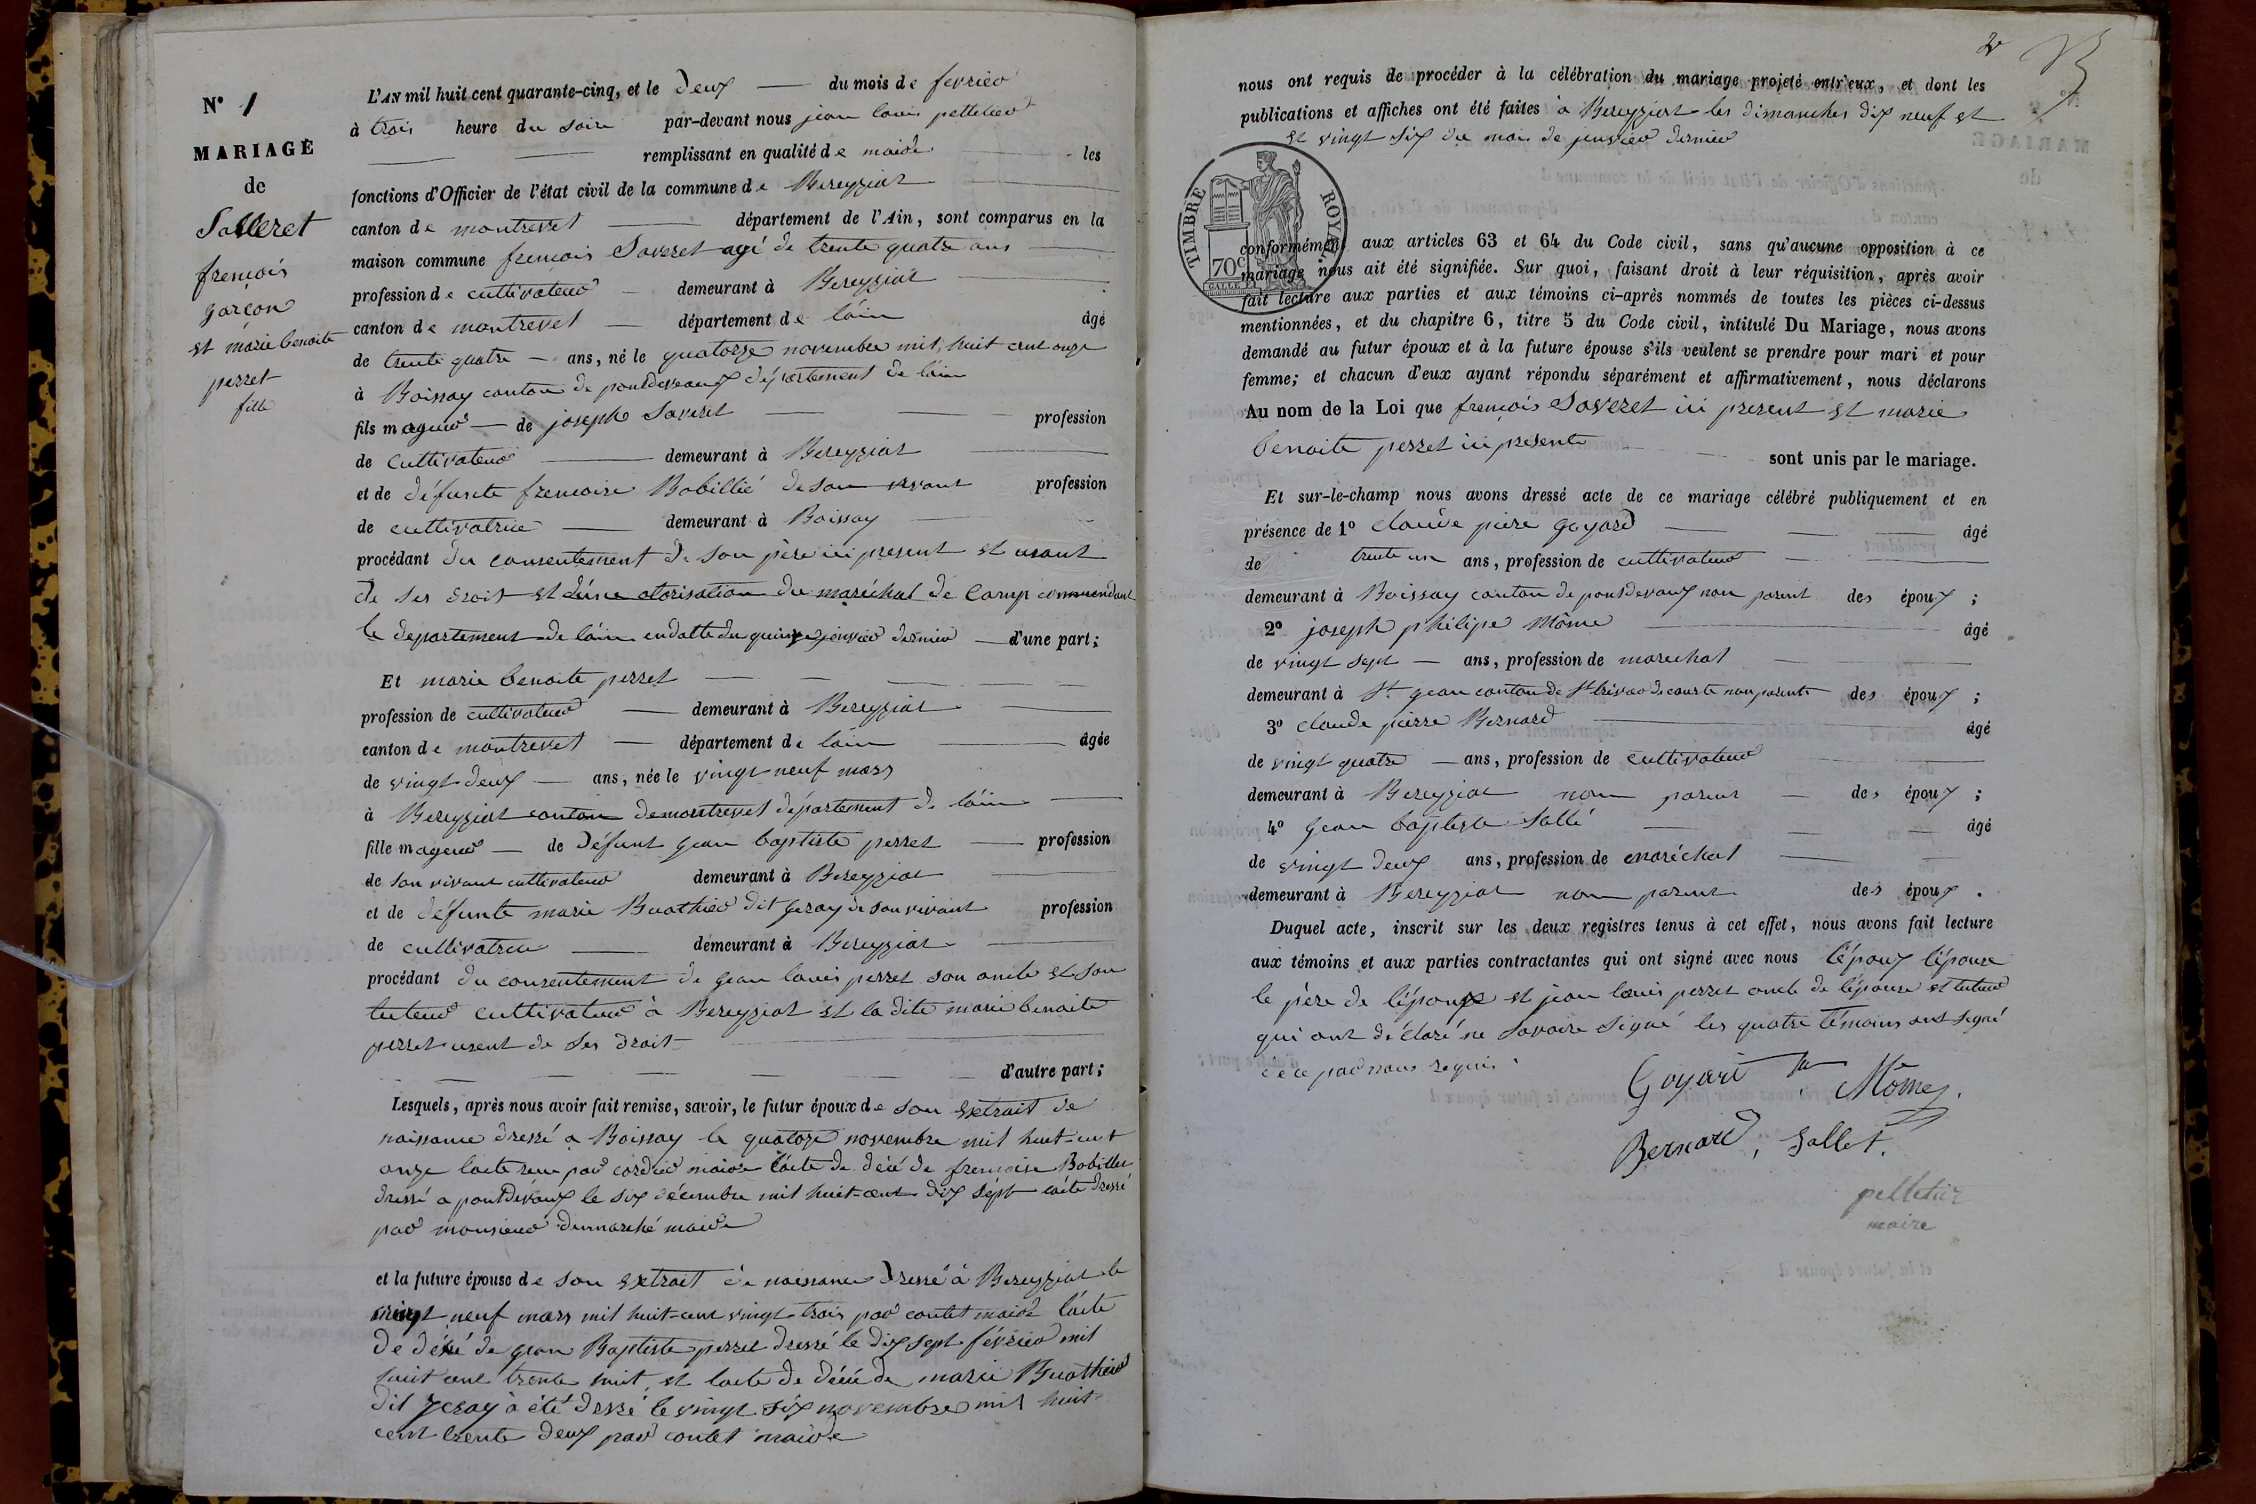 N° 1
MARIAGE
de
Saveret
françois
garçon
et marie benoite
perret
fille
L'AN mil huit cent quarante-cinq, et le deux du mois de fevrier
à trois heure du soire par-devant nous jean louis pelletier
remplissant en qualité de maire les
fonctions d'Officier de l'état civil de la commune de Bereyziat
canton de montrevel département de l'Ain, sont comparus en la
maison commune françois Saveret agé de trente quatre ans
profession de cultivateur demeurant à Bereyziat
canton de montrevel département de l'ain âgé
de trente quatre ans, né le quatorze novembre mil huit cent onze
à Boissay canton de pontdevaux département de lain
fils mageur de joseph Saveret profession
de cultivateur demeurant à Bereyziat
et de défunte francoise Bobillié de son vivant profession
de cultivatrice demeurant à Boissay
procédant du consentement de son père ici present et usant
de ses droit et d'une otorisation du maréchal de Camp commendant
le departement de lain en datte du quinze janvier dernier d'une part;
Et marie benoite perret
profession de cultivateur demeurant à Bereyziat
canton de montrevel département de lain âgée
de vingt deux ans, née le vingt neuf mars
à Bereyziat canton de montrevel département de lain
fille mageur de défunt jean baptiste perret profession
de son vivant cultivateur demeurant à Bereyziat
et de défunte marie Buathier dit jeray de son vivant profession
de cultivatrice demeurant à Bereyziat
procédant du consentement de jean louis perret son oncle et son
tuteur cultivateur à Bereyziat et la dite marie benoite
perret usent de ses droit
d'autre part;
Lesquels, après nous avoir fait remise, savoir, le futur époux de son extrait de
naissance dressé a Boissay le quatorze novembre mil huit-cent
onze lacte recu par cordier maire l'acte de décé de francoise Bobillier
dressé a pontdevaux le six décembre mil huit-cent dix sept l'acte dressé
par monsieur dumarché maire
et la future épouse de son extrait de naissance dressé à Bereyziat le
vingt neuf mars mil huit-cent vingt-trois par contet maire l'acte
de décé de jean Baptiste perret dressé le dix sept février mil
huit cent trente huit, et lacte de décé de marie Buathier
dit jeray à été dressé le vingt six novembre mil huit-
cent trente deux par contet maire
2
nous ont requis de procéder à la célébration du mariage projeté entr'eux, et dont les
publications et affiches ont été faites à Bereyziat les dimanches dix neuf et
et vingt six du mois de janvier dernier
TIMBRE ROYAL
70c
conformément aux articles 63 et 64 du Code civil, sans qu'aucune opposition à ce
mariage nous ait été signifiée. Sur quoi, faisant droit à leur réquisition, après avoir
fait lecture aux parties et aux témoins ci-après nommés de toutes les pièces ci-dessus
mentionnées, et du chapitre 6, titre 5 du Code civil, intitulé Du Mariage, nous avons
demandé au futur époux et à la future épouse s'ils veulent se prendre pour mari et pour
femme; et chacun d'eux ayant répondu séparément et affirmativement, nous déclarons
Au nom de la Loi que françois Saveret ici present et marie
benoite perret ici presente
sont unis par le mariage.
Et sur-le-champ nous avons dressé acte de ce mariage célébré publiquement et en
présence de 1° claude piere goyard âgé
de trente un ans, profession de cultivateur
demeurant à Boissay canton de pontdevaux non parent des époux;
2° joseph philipe Môme âgé
de vingt sept ans, profession de marechal
demeurant à St jean canton de St trivier de courte non parente des époux;
3° claude pierre Bernard âgé
de vingt quatre ans, profession de cultivateur
demeurant à Bereyziat non parent des époux;
4° jean baptiste Sallé âgé
de vingt deux ans, profession de maréchal
demeurant à Bereyziat non parent des époux.
Duquel acte, inscrit sur les deux registres tenus à cet effet, nous avons fait lecture
aux témoins et aux parties contractantes qui ont signé avec nous l'époux l'épouse
le père de l'époux et jean louis perret oncle de l'épouse et tuteur
qui ont déclaré ne savoire signé les quatre témoins ont signé
de ce par nous requis
Goyart Mômes.
Bernard, Sallet.
pelletier
maire